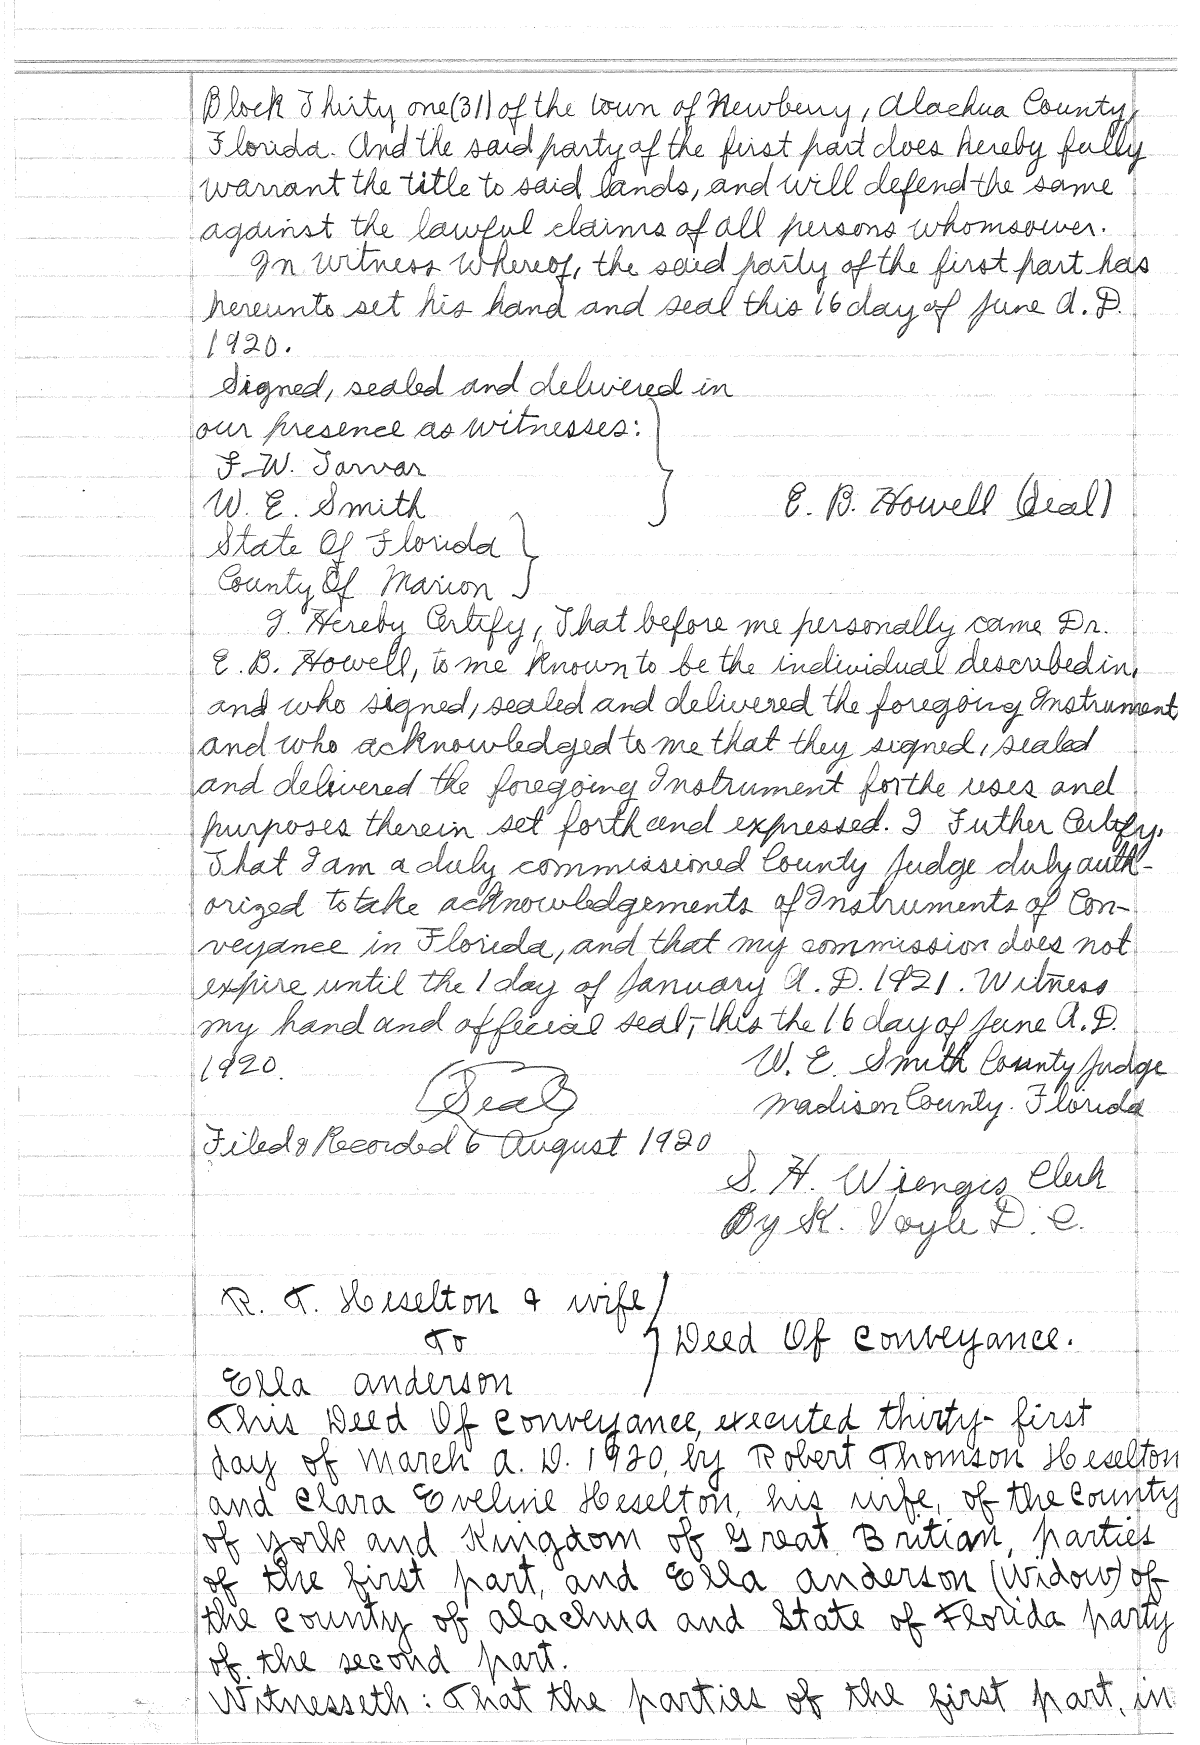 Block Thirty one(31) of the town of Newberry, Alachua County,
Florida. And the said party of the first part does hereby fully
warrant the title to said lands, and will defend the same
against the lawful claims of all persons whomsoever.
In Witness Whereof, the said party of the first part has
hereunto set his hand and seal this 16 day of June A. D.
1920.
Signed, sealed and delivered in
our presence as witnesses:
F. W. Tarvar
W. E. Smith
E. B. Howell (Seal)
State Of Florida
County Of Marion
I. Hereby Certify, That before me personally came Dr.
E. B. Howell, to me known to be the individual described in,
and who signed, sealed and delivered the foregoing Instrument
and who acknowledged to me that they signed, sealed
and delivered the foregoing Instrument for the uses and
purposes therein set forth and expressed. I Futher Certify,
That I am a duly commissioned County Judge duly auth-
orized to take acknowledgements of Instruments of Con-
veyance in Florida, and that my commission does not
expire until the 1 day of January A. D. 1921. Witness
my hand and official seal, this the 16 day of June A. D.
1920.
W. E. Smith County Judge
(Seal)
Madison County. Florida
Filed & Recorded 6 August 1920
S. H. Wienges Clerk
By K. Voyle D. C.
R. T. Heselton & wife
To
Deed Of Conveyance.
Ella Anderson
This Deed Of Conveyance, executed thirty-first
day of March A. D. 1920, by Robert Thomson Heselton
and Clara Eveline Heselton, his wife, of the County
of York and Kingdom of Great Britian, parties
of the first part, and Ella Anderson (Widow) of
the County of Alachua and State of Florida party
of the second part.
Witnesseth: That the parties of the first part, in